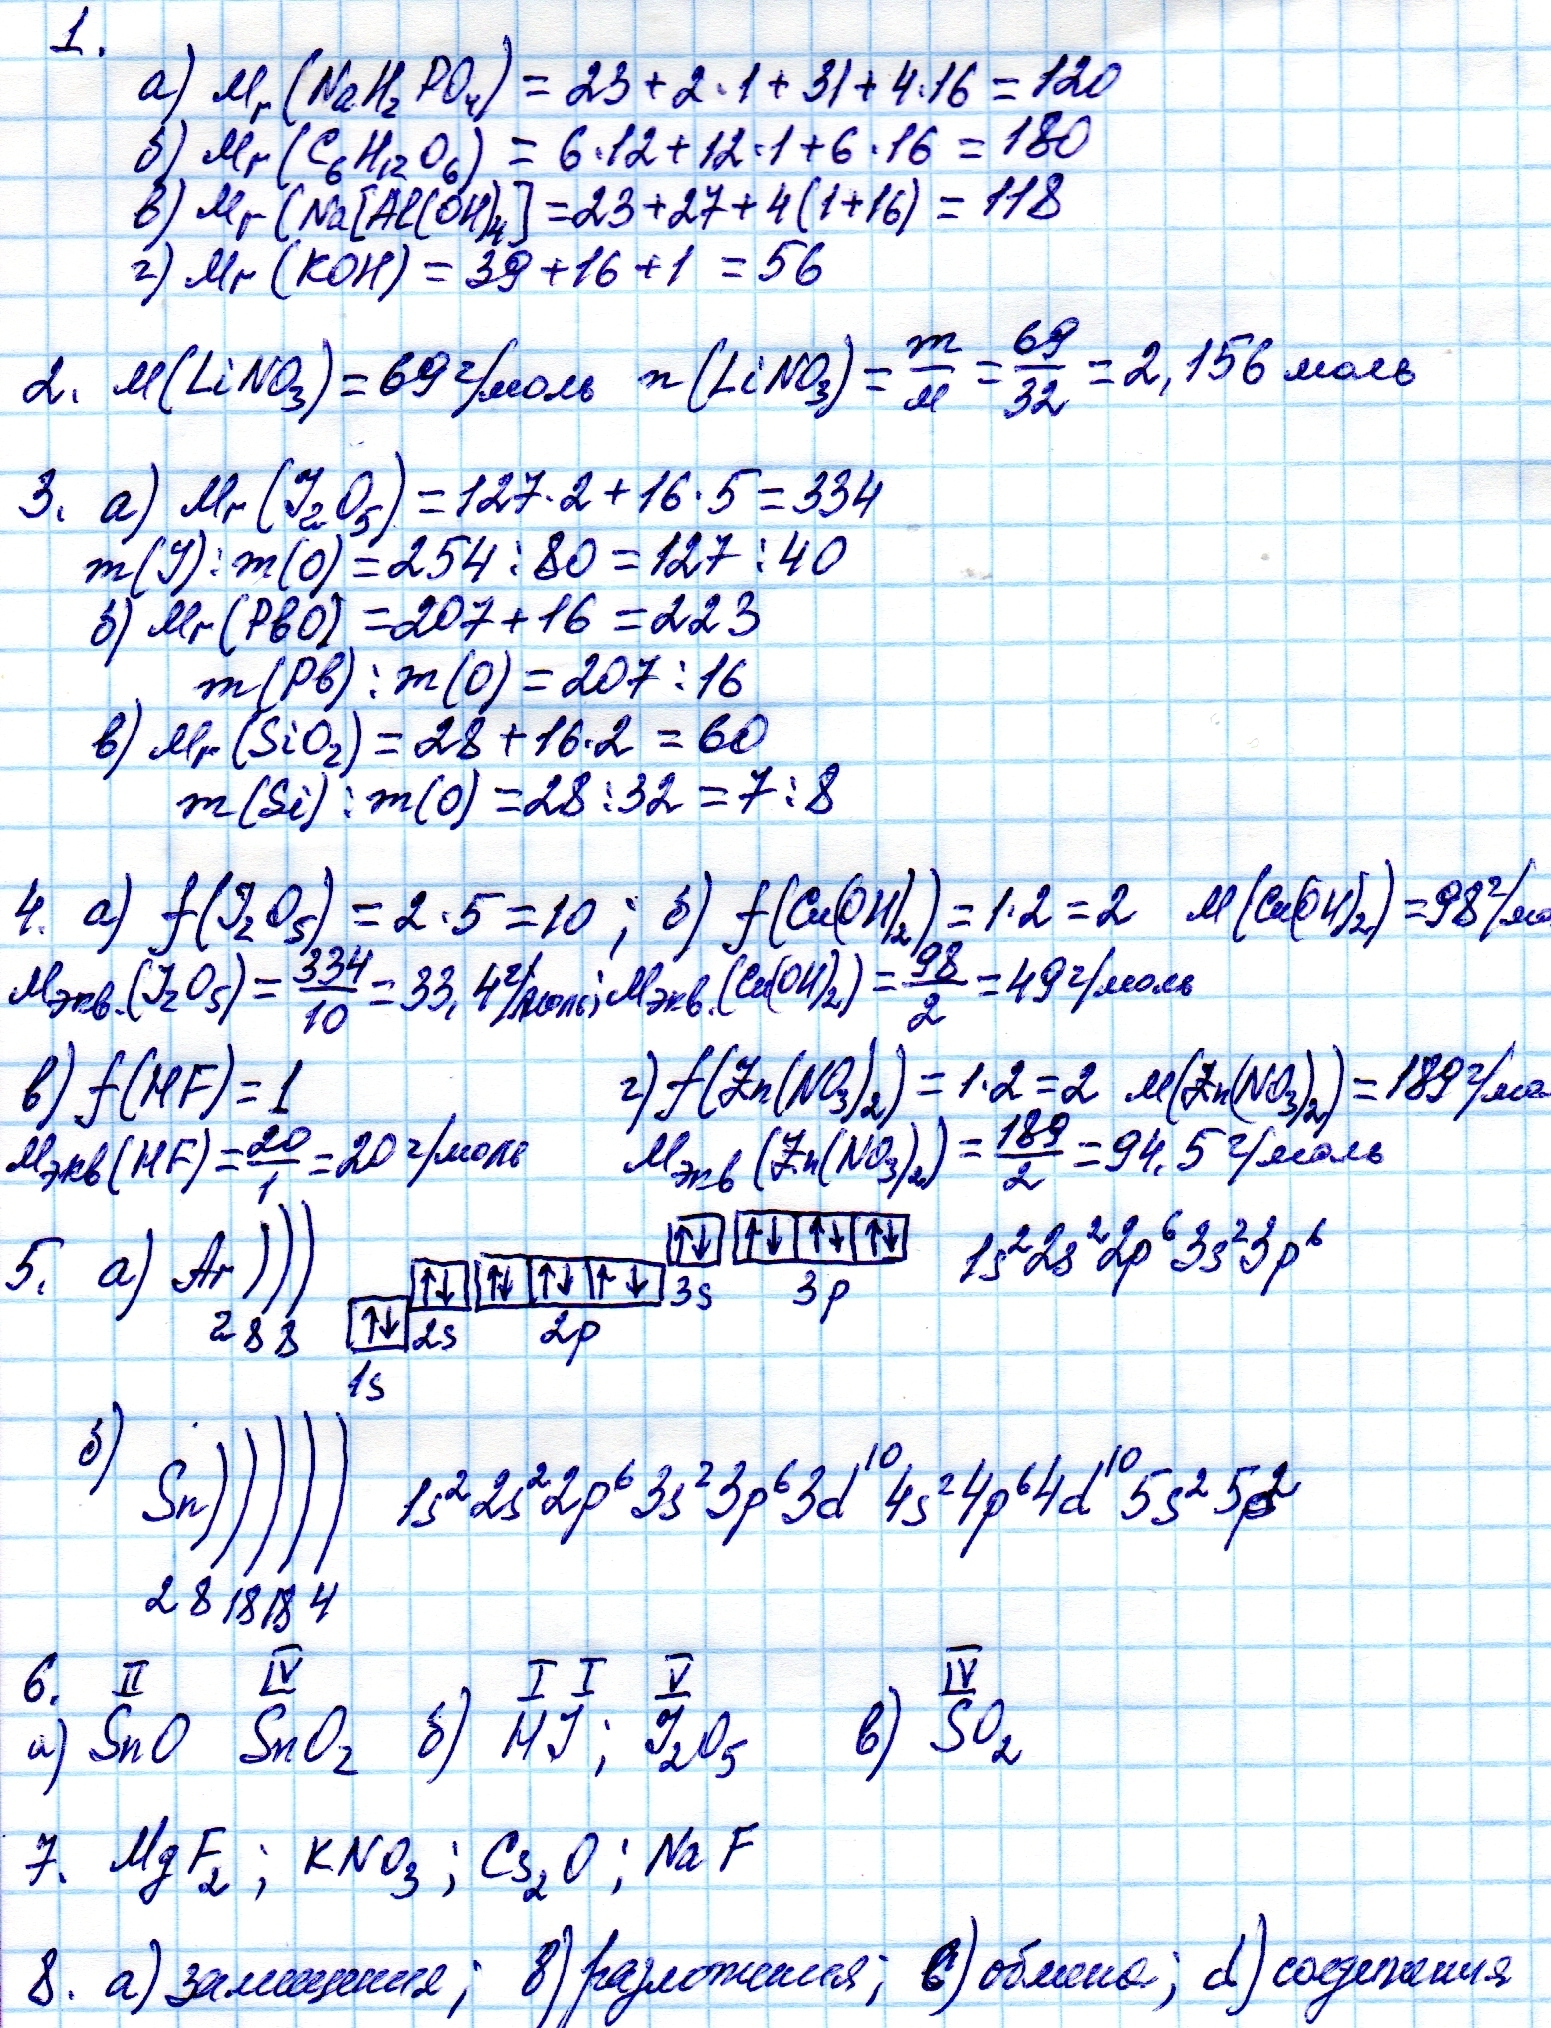 1.
а) Mr(NaH₂PO₄) = 23 + 2·1 + 31 + 4·16 = 120
б) Mr(C₆H₁₂O₆) = 6·12 + 12·1 + 6·16 = 180
в) Mr(Na[Al(OH)₄] = 23 + 27 + 4(1+16) = 118
г) Mr(KOH) = 39 + 16 + 1 = 56
2. M(LiNO₃) = 69 г/моль n(LiNO₃) = m/M = 69/32 = 2,156 моль
3. а) Mr(J₂O₅) = 127·2 + 16·5 = 334
m(J) : m(O) = 254 : 80 = 127 : 40
б) Mr(PbO) = 207 + 16 = 223
m(Pb) : m(O) = 207 : 16
в) Mr(SiO₂) = 28 + 16·2 = 60
m(Si) : m(O) = 28 : 32 = 7 : 8
4. а) f(J₂O₅) = 2·5 = 10 ; б) f(Cu(OH)₂) = 1·2 = 2 M(Cu(OH)₂) = 98 г/мо
Mэкв.(J₂O₅) = 334/10 = 33,4 г/моль; Mэкв.(Cu(OH)₂) = 98/2 = 49 г/моль
в) f(HF) = 1 г) f(Zn(NO₃)₂) = 1·2 = 2 M(Zn(NO₃)₂) = 189 г/мо
Mэкв(HF) = 20/1 = 20 г/моль Mэкв(Zn(NO₃)₂) = 189/2 = 94,5 г/моль
5. а) Ar ) ) ) ↑↓ ↑↓ ↑↓ ↑↓ ↑↓ ↑↓ ↑↓ ↑↓ ↑↓ 1s²2s²2p⁶3s²3p⁶
2 8 8 1s 2s 2p 3s 3p
б) Sn ) ) ) ) ) 1s²2s²2p⁶3s²3p⁶3d¹⁰4s²4p⁶4d¹⁰5s²5p²
2 8 18 18 4
6. II IV I I V IV
а) SnO SnO₂ б) HJ ; J₂O₅ в) SO₂
7. MgF₂ ; KNO₃ ; Cs₂O ; NaF
8. а) замещения; в) разложения; с) обмена; d) соединения